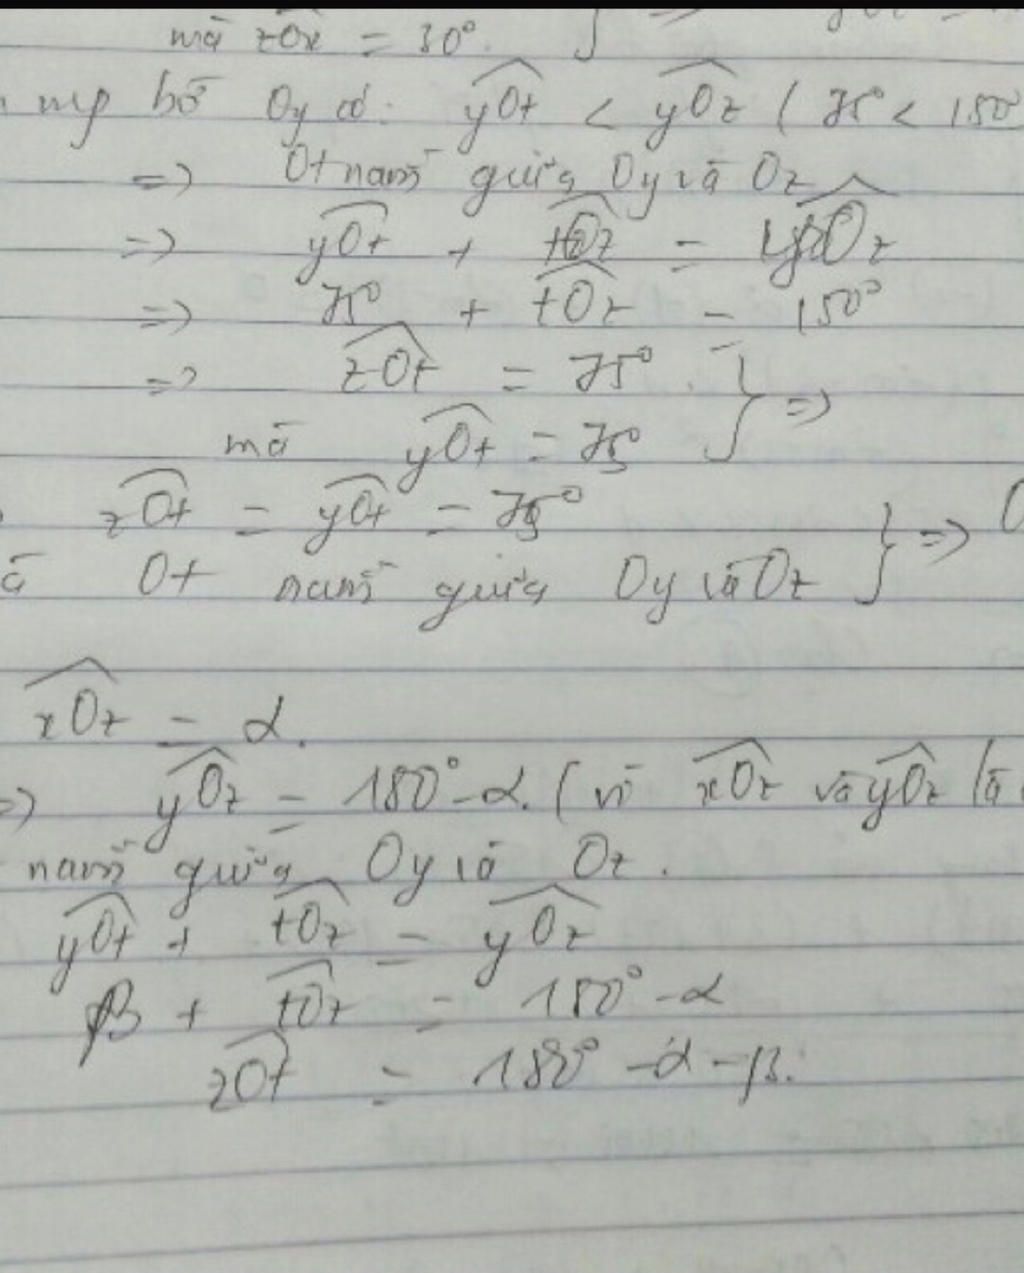 mà zOx = 30°. } =>
mp bờ Oy có: yOt < yOz ( 75° < 150°
=> Ot nằm giữa Oy và Oz
=> yOt + tOz = yOz
=> 75° + tOz = 150°
=> zOt = 75° } =>
mà yOt = 75°
zOt = yOt = 75° } =>
Ot nằm giữa Oy và Oz
xOz = α.
=> yOz = 180° - α. ( vì xOz và yOz là
nằm giữa Oy và Oz.
yOt + tOz = yOz
β + tOz = 180° - α
zOt = 180° - α - β.